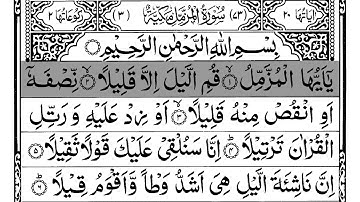 اٰيَاتُهَا ٢٠ (٧٣) سُوْرَةُ الْمُزَّمِّلِ مَكِّيَّةٌ (٣) رُكُوْعَاتُهَا ٢
بِسْمِ اللّٰهِ الرَّحْمٰنِ الرَّحِيْمِ
يٰۤاَيُّهَا الْمُزَّمِّلُ ۙ﴿۱﴾ قُمِ الَّيْلَ اِلَّا قَلِيْلًا ۙ﴿۲﴾ نِّصْفَهٗۤ
اَوِ انْقُصْ مِنْهُ قَلِيْلًا ۙ﴿۳﴾ اَوْ زِدْ عَلَيْهِ وَ رَتِّلِ
الْقُرْاٰنَ تَرْتِيْلًا ؕ﴿۴﴾ اِنَّا سَنُلْقِيْ عَلَيْكَ قَوْلًا ثَقِيْلًا ﴿۵﴾
اِنَّ نَاشِئَةَ الَّيْلِ هِيَ اَشَدُّ وَطْاً وَّ اَقْوَمُ قِيْلًا ؕ﴿۶﴾